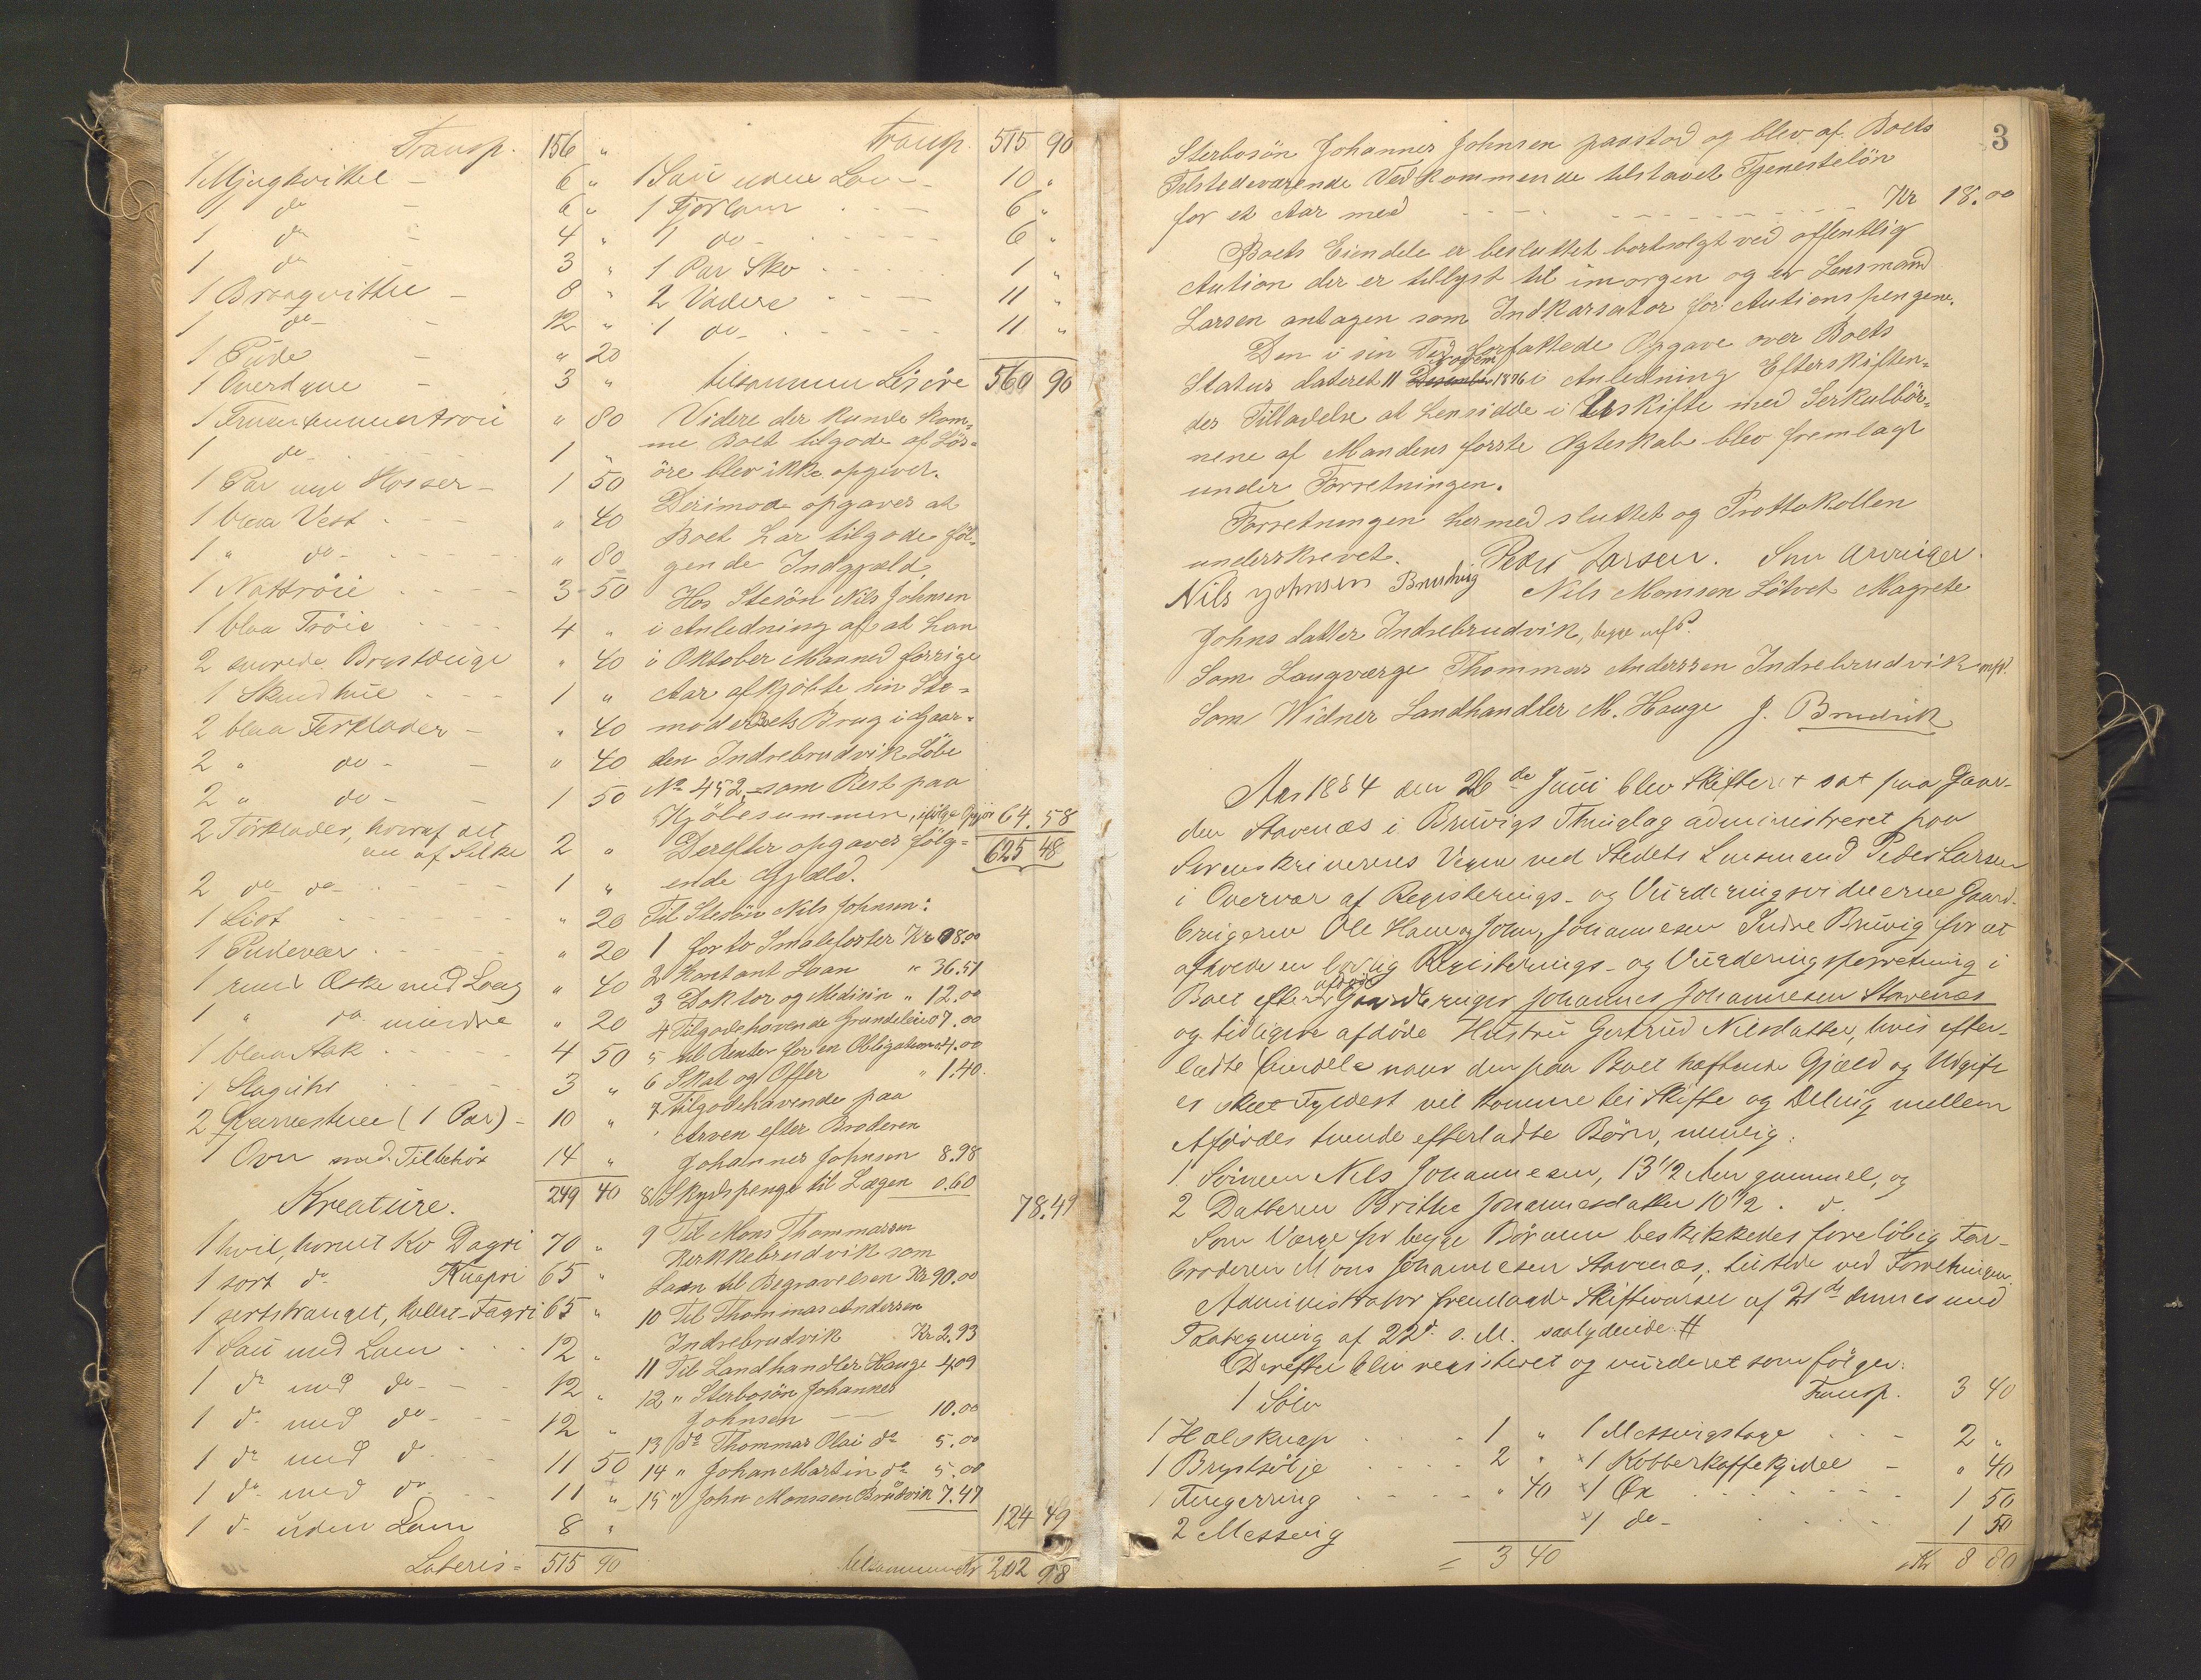 Transp. 156 "
1 Mjugkvittel - 6 "
1 do - 6 "
1 do - 4 "
1 do - 3 "
1 Braagvittel - 8 "
1 do - - 12 "
1 Pude - " 20
1 Overdyne - 3 "
1 Fruentimmertröie " 80
1 do 1 "
1 Par nye Hosser - 1 50
1 blaa Vest - " 40
1 " do - " 80
1 Nattröie 3 50
1 blaa Tröie 4 "
2 Brystduge " 40
1 Skudhue 1 "
2 blaa Terklæder - " 40
2 " do - - " 40
2 " do - - 1 50
2 Törklæder, hvoraf det
ene af Silke 2 "
2 do do 1 "
1 List " 20
1 Pudevær " 20
1 rund Æske med Loug " 40
1 " do mindre " 20
1 blaa Stak 4 50
1 Slaguhr 3 "
2 (1 Par) - 10 "
1 Ovn med Tilbehör 14 "
249 40
Kreature.
1 hvit, hornet Ko Dagri 70 "
1 sort do 65 "
1 kollet - Fagri 65 "
1 Sau med Lam 12 "
1 do med do - - 12 "
1 do med do - 12 "
1 do med do 11 50
1 do med do 11 "
1 do uden Lam 8 "
Lateris = 515 90
Transp. 515 90
1 Sau uden Lam - 10 "
1 Fjorlam 6 "
1 do - 6 "
1 Par Sko 1 "
2 Vædere 11 "
1 do - 11 "
tilsammen Lösöre 560 90
Videre der kunde kom=
me Boet tilgode af Lös=
öre blev ikke opgivet.
Derimod opgaves at
Boet har tilgode föl=
gende Indgjæld
Hos Stesön Nils Johnsen
i Anledning af at han
i Oktober Maaned forrige
Aar afkjöbte sin Ste=
moder Boets Brug i Gaar=
den Indrebrudvik Löbe
No 452 som Rest paa
Kjöbesummen, ifölge Opgjör 64.58
Derefter opgaves fölg= 625 48
ende Gjæld.
Til Stesön Nils Johnsen:
1 for to Smaleforter Kr 08.00
2 Kontant Laan " 36.51
3 Doktor og Medisin " 12.00
4 Tilgodehavende Grundeleie 07.00
5 til Renter for en Obligation 04.00
6 Skat og Offer " 1.40
7 Tilgodehavende paa
Arven efter Broderen
Johannes Johnsen 8.98
8 Skydspenge til Lægen 0.60
78.49
9 Til Mons Thommassen
Herkkebrudvik som
Laan til Begravelsen Kr 90.00
10 Til Thommas Andersen
Indrebrudvik Kr 2.93
11 Til Landhandler Hauge 4.09
12 " Sterbosön Johannes
Johnsen 10.00
13 do Thommas Olai do 5.00
14 " Johan Martin do 5.00
15 " John Monssen Brudvik 7.47
124 49
tilsammen Kr 202 98
3
Sterbosön Johannes Johnsen paastod og blev af Boets
Tilstedeværende Vedkommende tilstaaet Tjenestelön
for et Aar med Kr 18.00
Boets Eiendele er besluttet bortsolgt ved offentlig
Aution der er tillyst til imorgen og er Lensmand
Larsen antagen som Indkassator for Autionspengene.
Den i sin Tid forfattede Opgave over Boets
Status dateret 11 Novem 1876 i Anledning Efterskiften=
des Tilladelse at hensidde i Uskifte med Serkulbör=
nene af Mandens förste Ægteskab blev fremlagt
under Forretningen.
Forretningen hermed sluttet og Prottokollen
underskrevet. Peder Larsen. Som Arvinger
Nils Johnsen Brudvig Nils Monssen Lötvet Magrete
Johns datter Indrebrudvik, begge mfP.
Som Laugværge Thommas Anderssen Indrebrudvik mfP.
Som Widner Landhandler M. Hauge J. Brudvik
Aar 1884 den 26de Juni blev Skifteret sat paa Gaar-
den Stavenæs i Bruvigs Thinglag administreret paa
Sorenskriverens Vegne ved Stedets Lensmand Peder Larsen
i Overvær af Registerings- og Vurderingsvidnerne Gaard-
brugerne Ole Hanes og John Johannesen Indre Bruvig for at
afholde en lovlig Registerings- og Vurderingsforretning i
Boet efter afdöde Gaardbruger Johannes Johannesen Stavenæs
og tidligere afdöde Hustru Gertrud Nilsdatter, hvis efter-
ladte Eiendele naar den paa Boet hæftende Gjæld og Udgift
er skeet Fyldest vil komme til Skifte og Deling mellem
Afdödes tvende efterladte Börn, nemlig:
1. Sönnen Nils Johannesen, 13 1/2 Aar gammel, og
2 Datteren Brithe Johannesdatter 10 1/2 . d.
Som Værge for begge Börnene beskikkedes foreløbig Far-
broderen Mons Johannesen Stavenæs, tilstede ved Forretningen.
Administrator fremlagde Skiftevarsel af 21de dennes med
Paategning af 22d. s. M. saalydende: #
Derefter blev registeret og vurderet som fölger:
1 Sölv
1 Halsknap 1 "
1 Brystsölje 2 "
1 Fingerring " 40
2 Messing
= 3 40
Transp. 3 40
1 Messingstage 2 "
1 Kobberkaffekjedel - " 40
1 Öx 1 50
1 do - 1 50
Kr 8 80